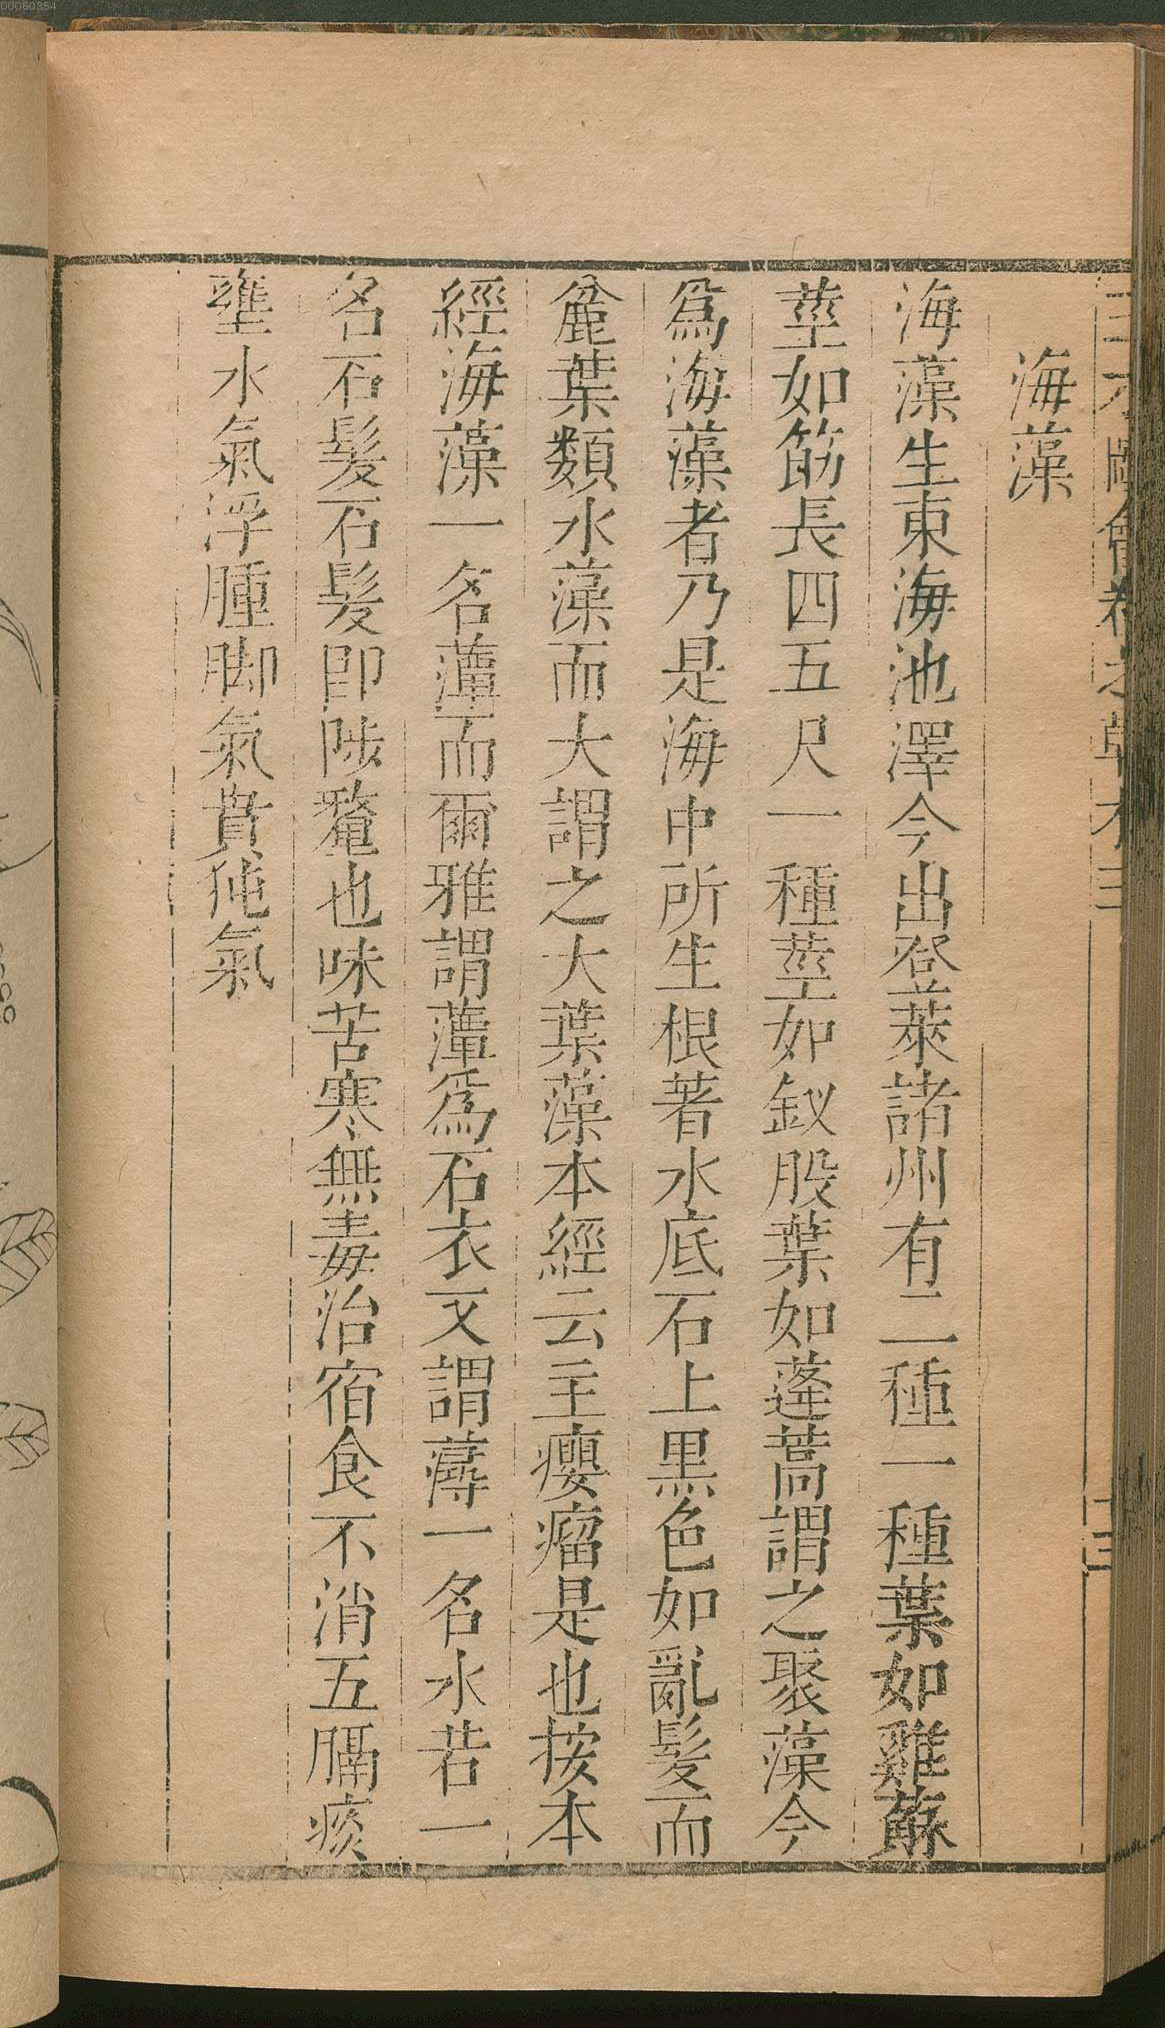 00060364
海藻
海藻生東海池澤今出登萊諸州有二種一種葉如雞蘇
莖如筯長四五尺一種莖如釵股葉如蓬蒿謂之聚藻今
爲海藻者乃是海中所生根著水底石上黑色如亂髮而
麄葉類水藻而大謂之大葉藻本經云主癭瘤是也按本
經海藻一名薚而爾雅謂薚爲石衣又謂蕁一名水苔一
名石髮石髮即陟釐也味苦寒無毒治宿食不消五膈痰
壅水氣浮腫脚氣賁㹠氣